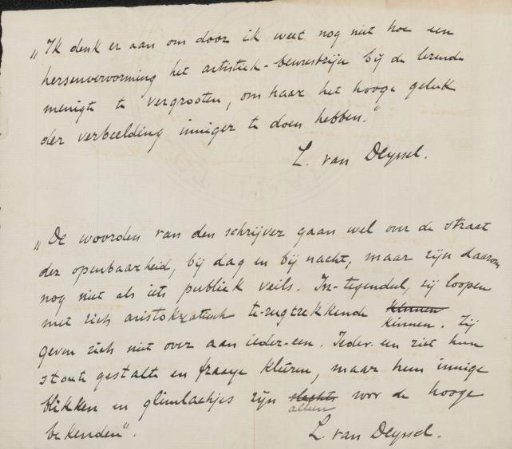 „Ik denk er aan om door ik weet nog niet hoe een
hersenvervorming het artistiek-bewustzijn bij de lezende
menigte te vergrooten, om haar het hooge geluk
der verbeelding inniger te doen hebben."
L. van Deyssel.
„De woorden van den schrijver gaan wel over de straat
der openbaarheid, bij dag en bij nacht, maar zijn daarom
nog niet als iets publiek veils. In-tegendeel, zij loopen
met zich aristokratisch te-rugtrekkende kinnen
kinnen. Zij
geven zich niet over aan ieder-een. Ieder-een ziet hun
stoute gestalte en fraaye kleêren, maar hun innige
blikken en glimlachjes zijn slechts voor de hooge
alleen
bekenden".
L. van Deyssel.